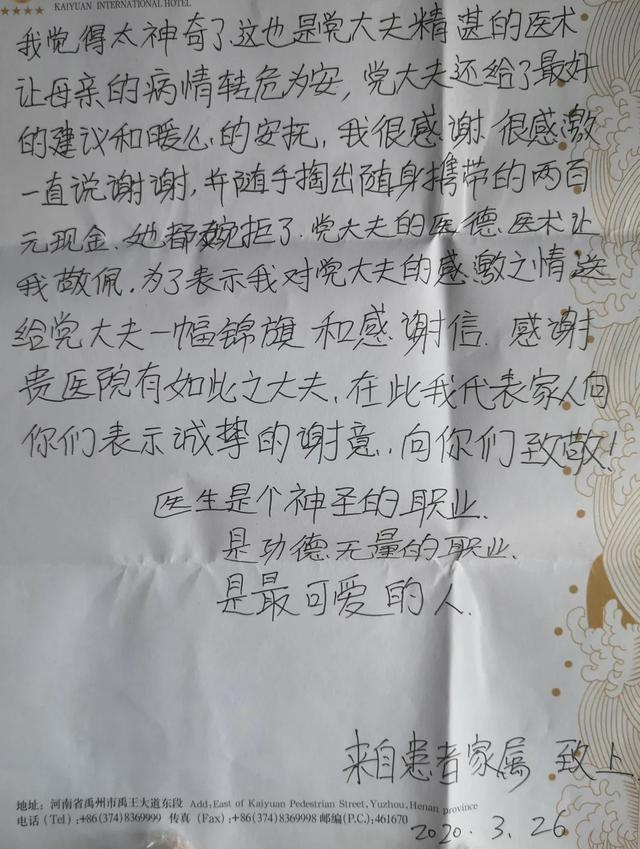 KAIYUAN INTERNATIONAL HOTEL
我觉得太神奇了,这也是党大夫精甚的医术
让母亲的病情转危为安,党大夫还给了最好
的建议和暖心的安抚,我很感谢很感激
一直说谢谢,并随手掏出随身携带的两百
元现金、她都婉拒了.党大夫的医德、医术让
我敬佩.为了表示我对党大夫的感激之情送
给党大夫一幅锦旗和感谢信.感谢
贵医院有如此之大夫.在此我代表家人向
你们表示诚挚的谢意.向你们致敬!
医生是个神圣的职业.
是功德无量的职业.
是最可爱的人.
来自患者家属 致上
地址:河南省禹州市禹王大道东段 Add:East of Kaiyuan Pedestrian Street,Yuzhou.Henan province
电话(Tel):+86(374)8369999 传真(Fax):+86(374)8369998 邮编(P.C.):461670
2020.3.26